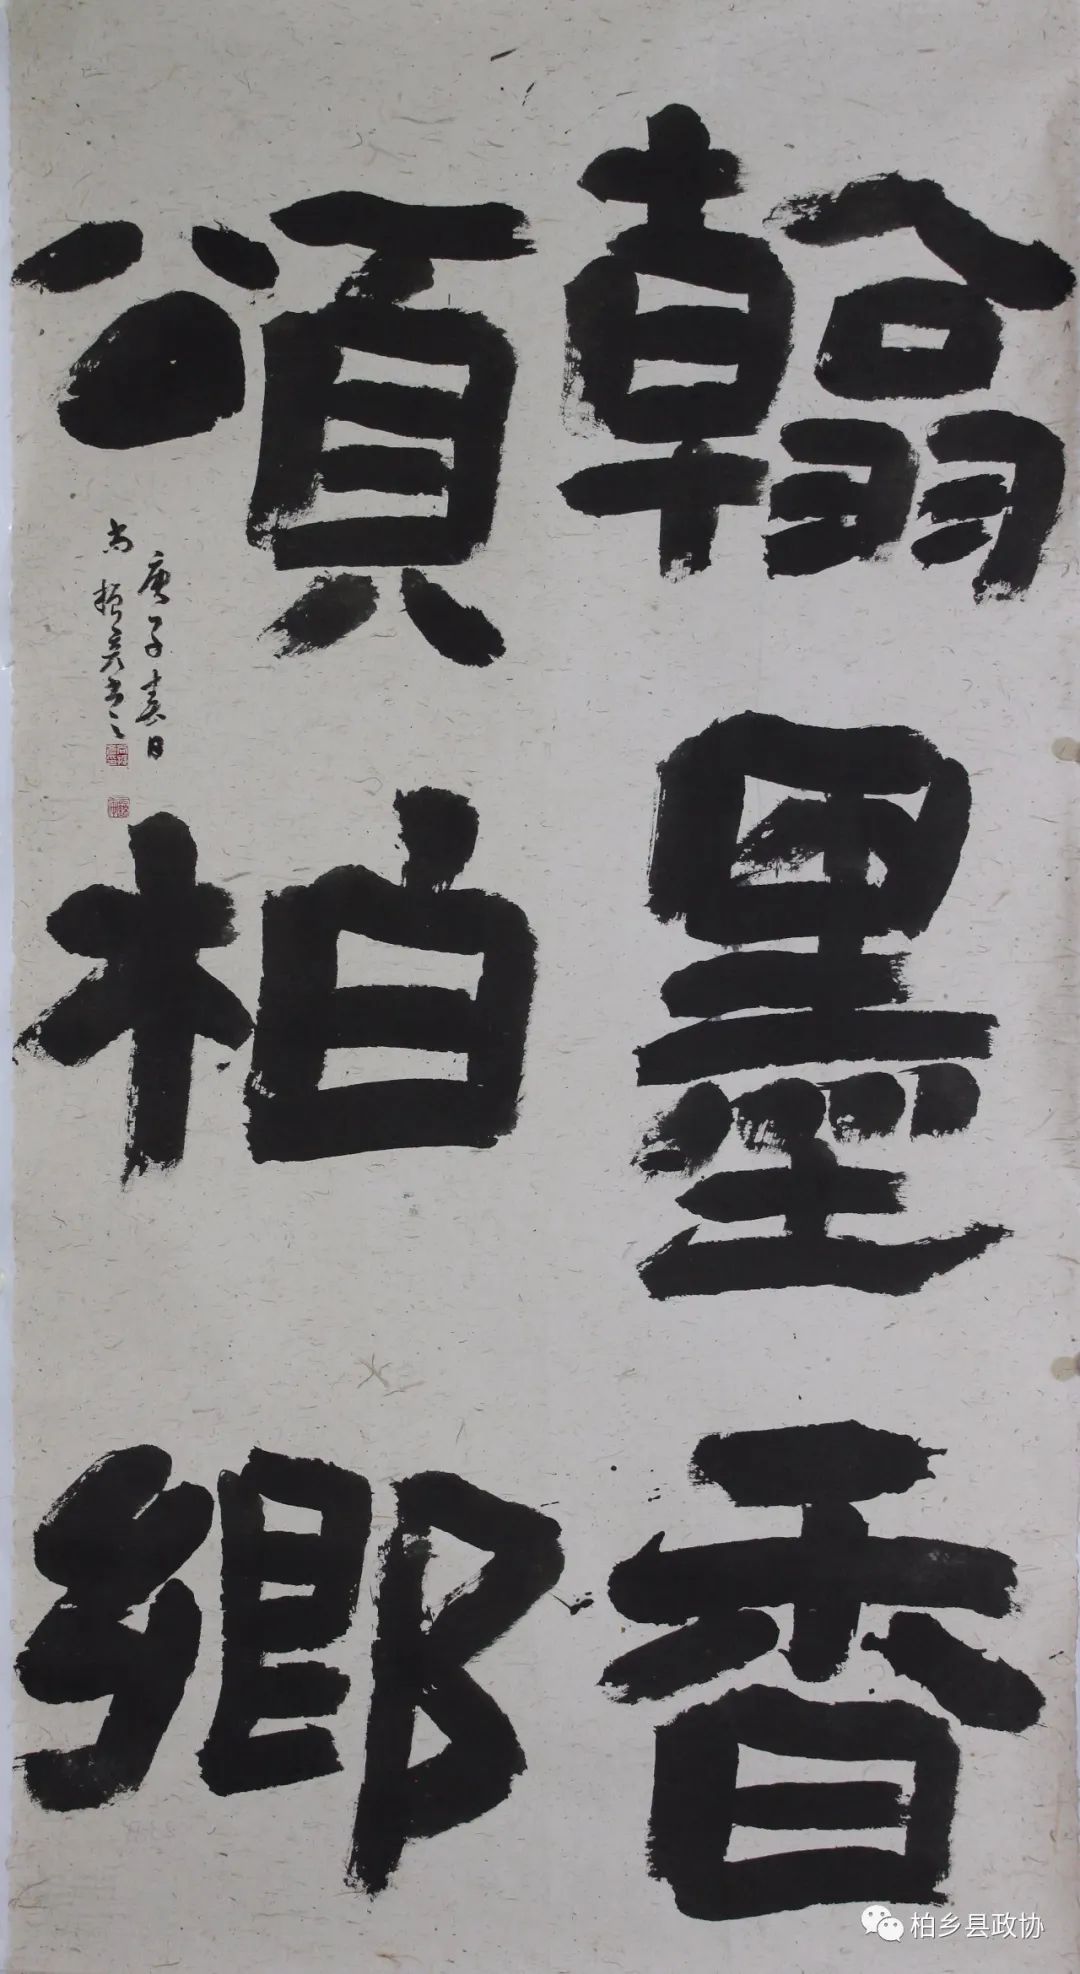 翰墨香
頌柏鄉
庚子春日
尚
書
柏乡县政协